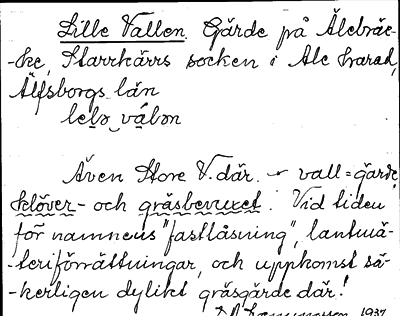 Lille Vallen. Gärde på Älebräc-
-ke, Starrkärrs socken i Ale härad,
Älfsborgs län
Även Store V. där. - vall = gärde,
klöver- och gräsbevuxet. Vid tiden
för namnens "fastlåsning", lantmä-
-teriförrättningar, och uppkomst sä-
-kerligen dylikt gräsgärde där!
1937